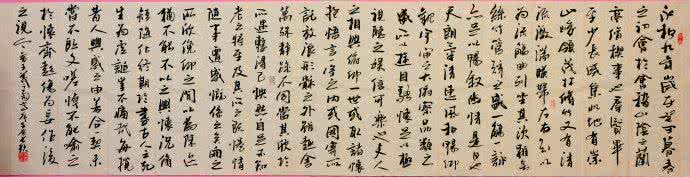 永和九年歲在癸丑暮春
之初會于會稽山陰之蘭
亭脩禊事也群賢畢
至少長咸集此地有崇
山峻領茂林脩竹又有清
流激湍暎帶左右引以
為流觴曲水列坐其次雖無
絲竹管弦之盛一觴一詠
亦足以暢叙幽情是日也
天朗氣清惠風和暢仰
觀宇宙之大俯察品類之
盛所以遊目騁懷足以極
視聽之娛信可樂也夫人
之相與俯仰一世或取諸懷
抱悟言一室之內或因寄所
託放浪形骸之外雖趣舍
萬殊靜躁不同當其欣於
所遇暫得己怏然自足不知
老之將至及其所之既倦情
隨事遷感慨係之矣向之
所欣俛仰之間以為陳迹
猶不能不以之興懷況脩
短隨化終期於盡古人云死
生為虛誕豈不痛哉每攬
昔人興感之由若合一契未
嘗不臨文嗟悼不能喻之
於懷齊彭殤為妄作後
之視